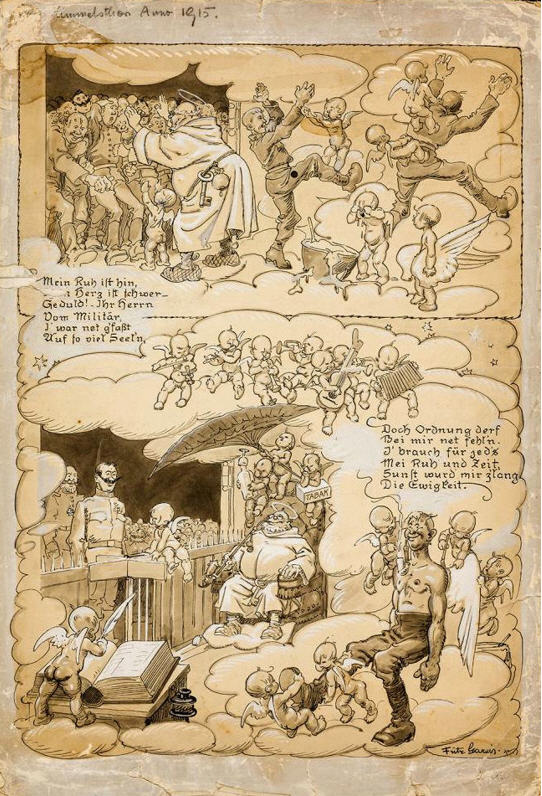 Himmelsthor Anno 1915.
Mein Ruh ist hin,
Herz ist schwer_
Geduld!- Ihr Herrn
Vom Militär,
I' war net g'faßt
Auf so viel Seel'n,
Doch Ordnung derf
Bei mir net fehl'n.
I' brauch für jed's
Mei Ruh und Zeit,
Sunst wurd mir z'lang
Die Ewigkeit._
TABAK
Fritz